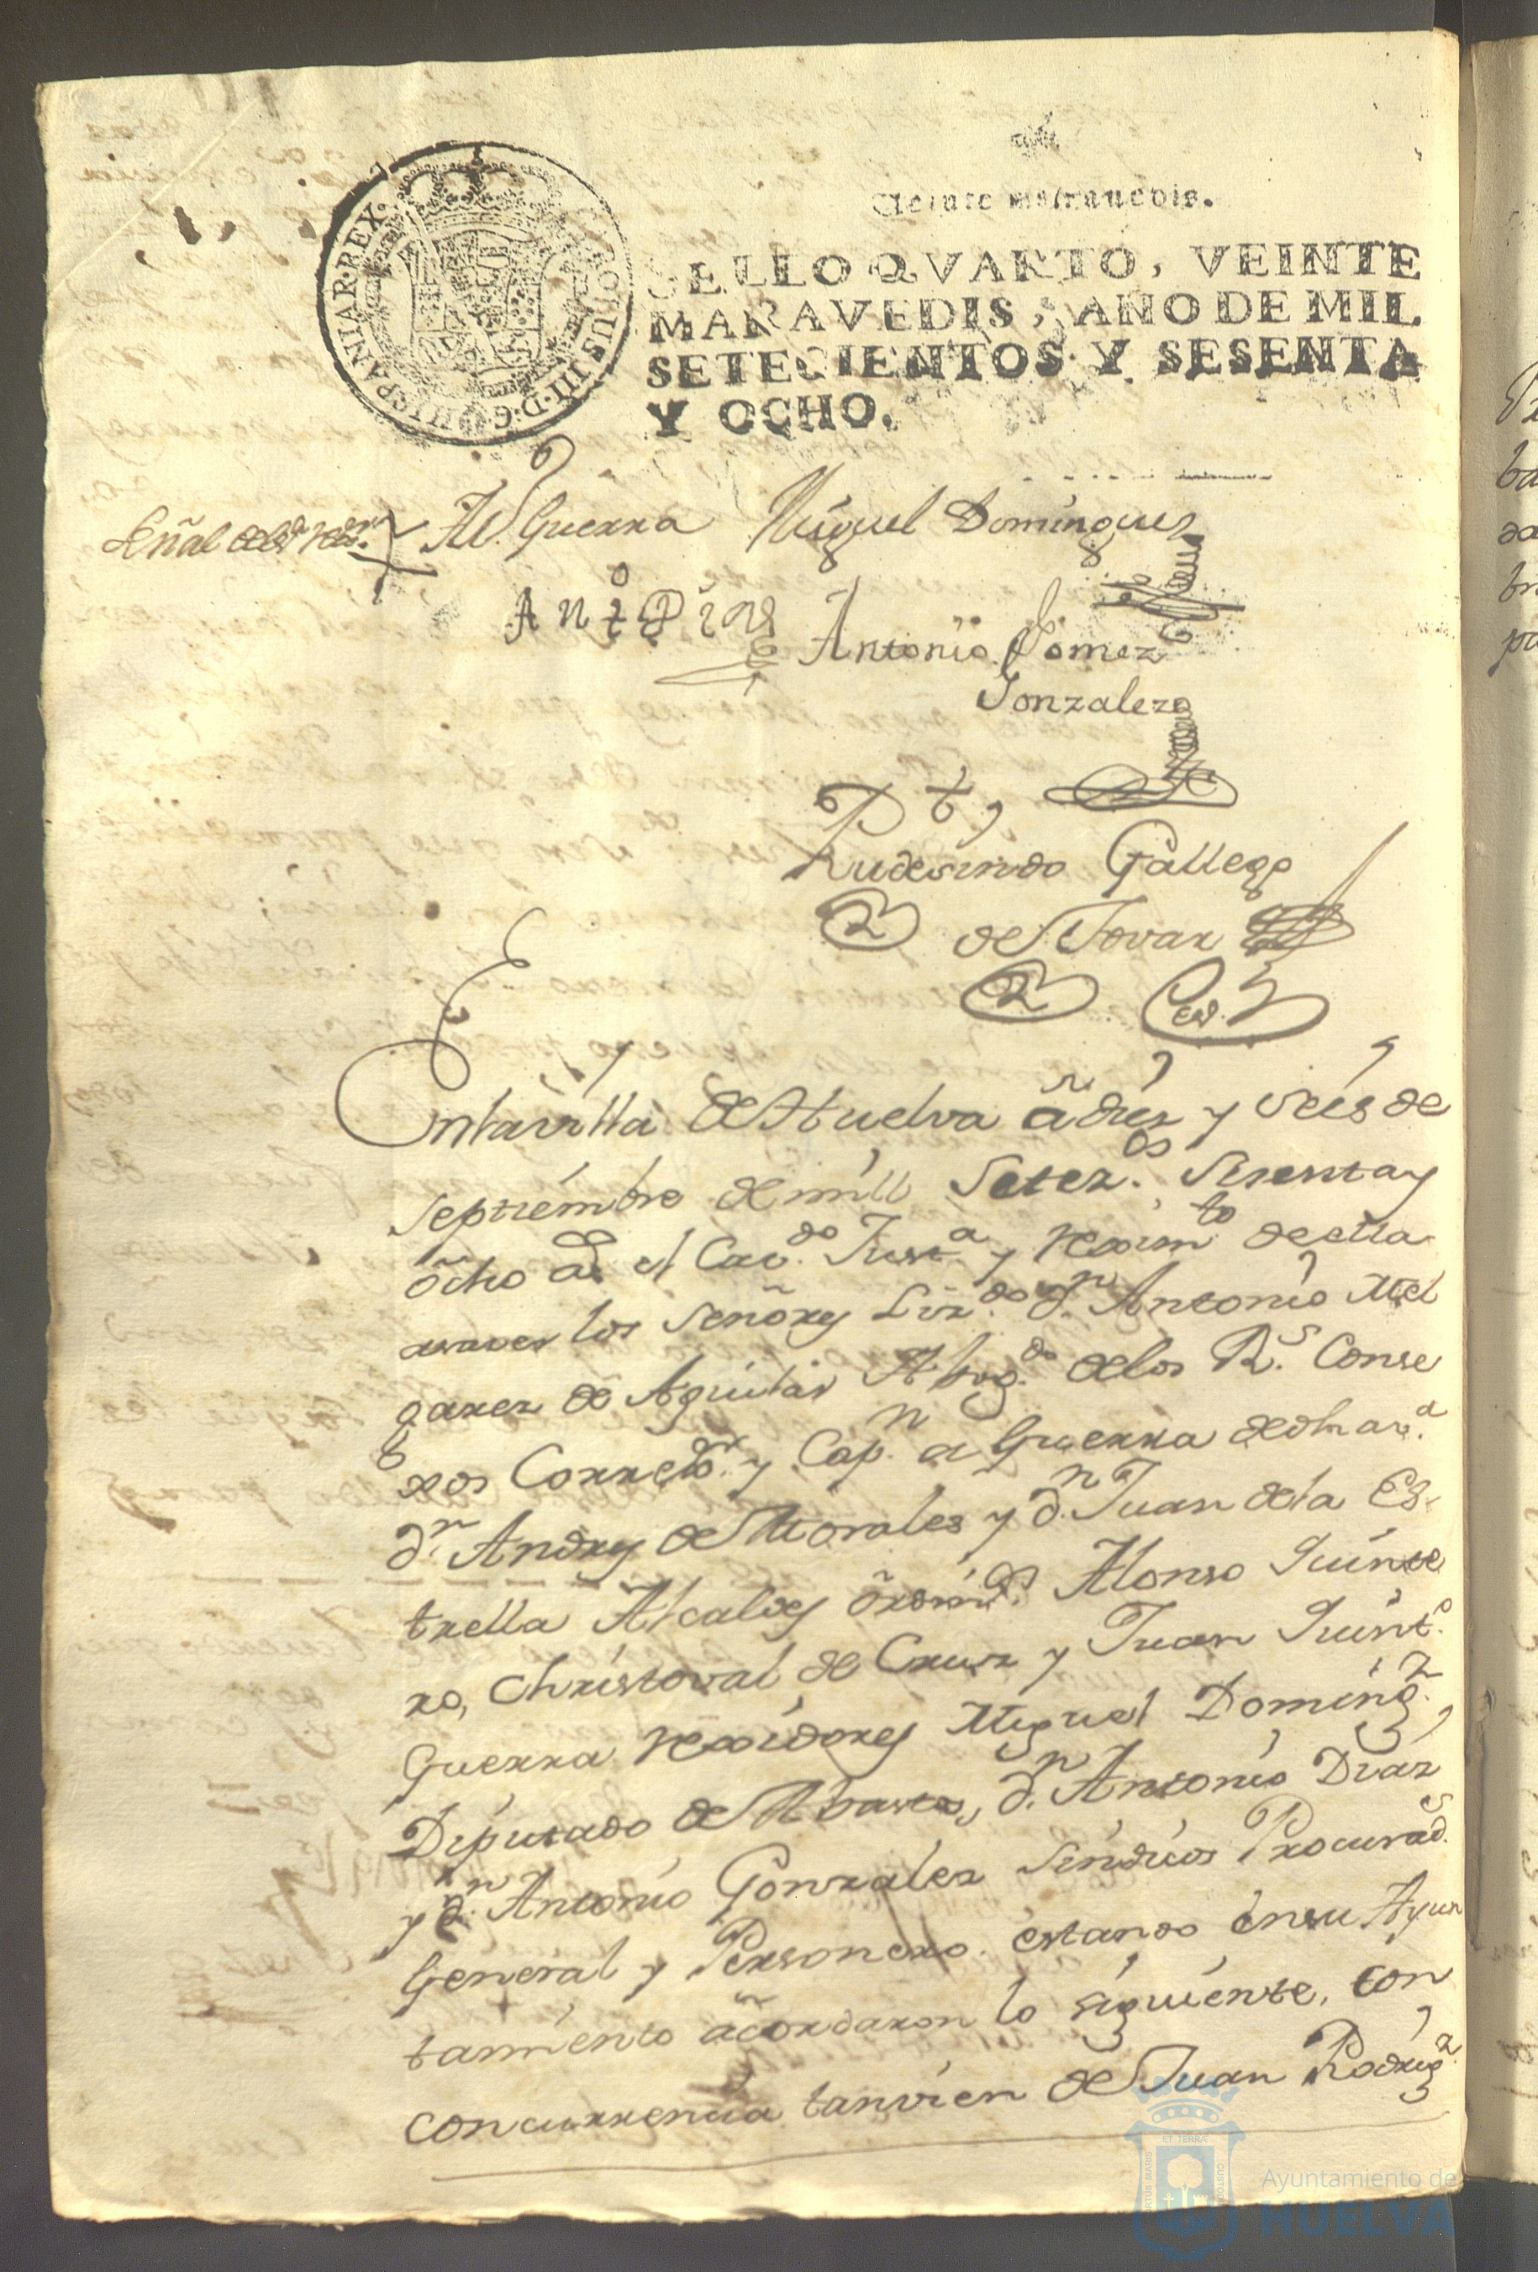 Veinte maravedis.
SELLO QVARTO, VEINTE
MARAVEDIS, AÑO DE MIL
SETECIENTOS Y SESENTA
Y OCHO.
CAROLUS III D. G. HISPANIAR. REX.
Señal Guerra Miguel Dominguez
Antᵒ Diaz
Antonio Gomez
Gonzalez
Rudesindo Gallego
de Tovar
Enlavilla de Huelva â diez y seis de
septiembre de mill Setezᵒˢ. Sesenta y
ôcho aˢ el Cavᵈᵒ. Justᵃ. y Rexímᵗᵒ de ella
los Señores Lizᵈᵒ. dⁿ. Antonío Mel
garez de Aguilar Abogᵈᵒ. delos Rˢ. Conse
xos Corregᵒʳ. y Capⁿ. a Guerra
dⁿ. Andres de Morales y dⁿ. Juan dela Es-
trella Alcaldes ôrdinˢ. Alonso Quinte
ro, Christoval de Cruz y Juan Quintᵒ.
Guerra Rexidores Miguel Domingᶻ.
Diputado de Abastos, dⁿ. Antonio Díaz
y dⁿ. Antonio Gonzalez Sindicos Procuradˢ.
General y Personero. estando ensu Ayun
tamiento âcordaron lo siguiente, con
concurrencia tanvien de Juan Rodrigᶻ.
ET TERRÆ
Ayuntamiento de
HUELVA